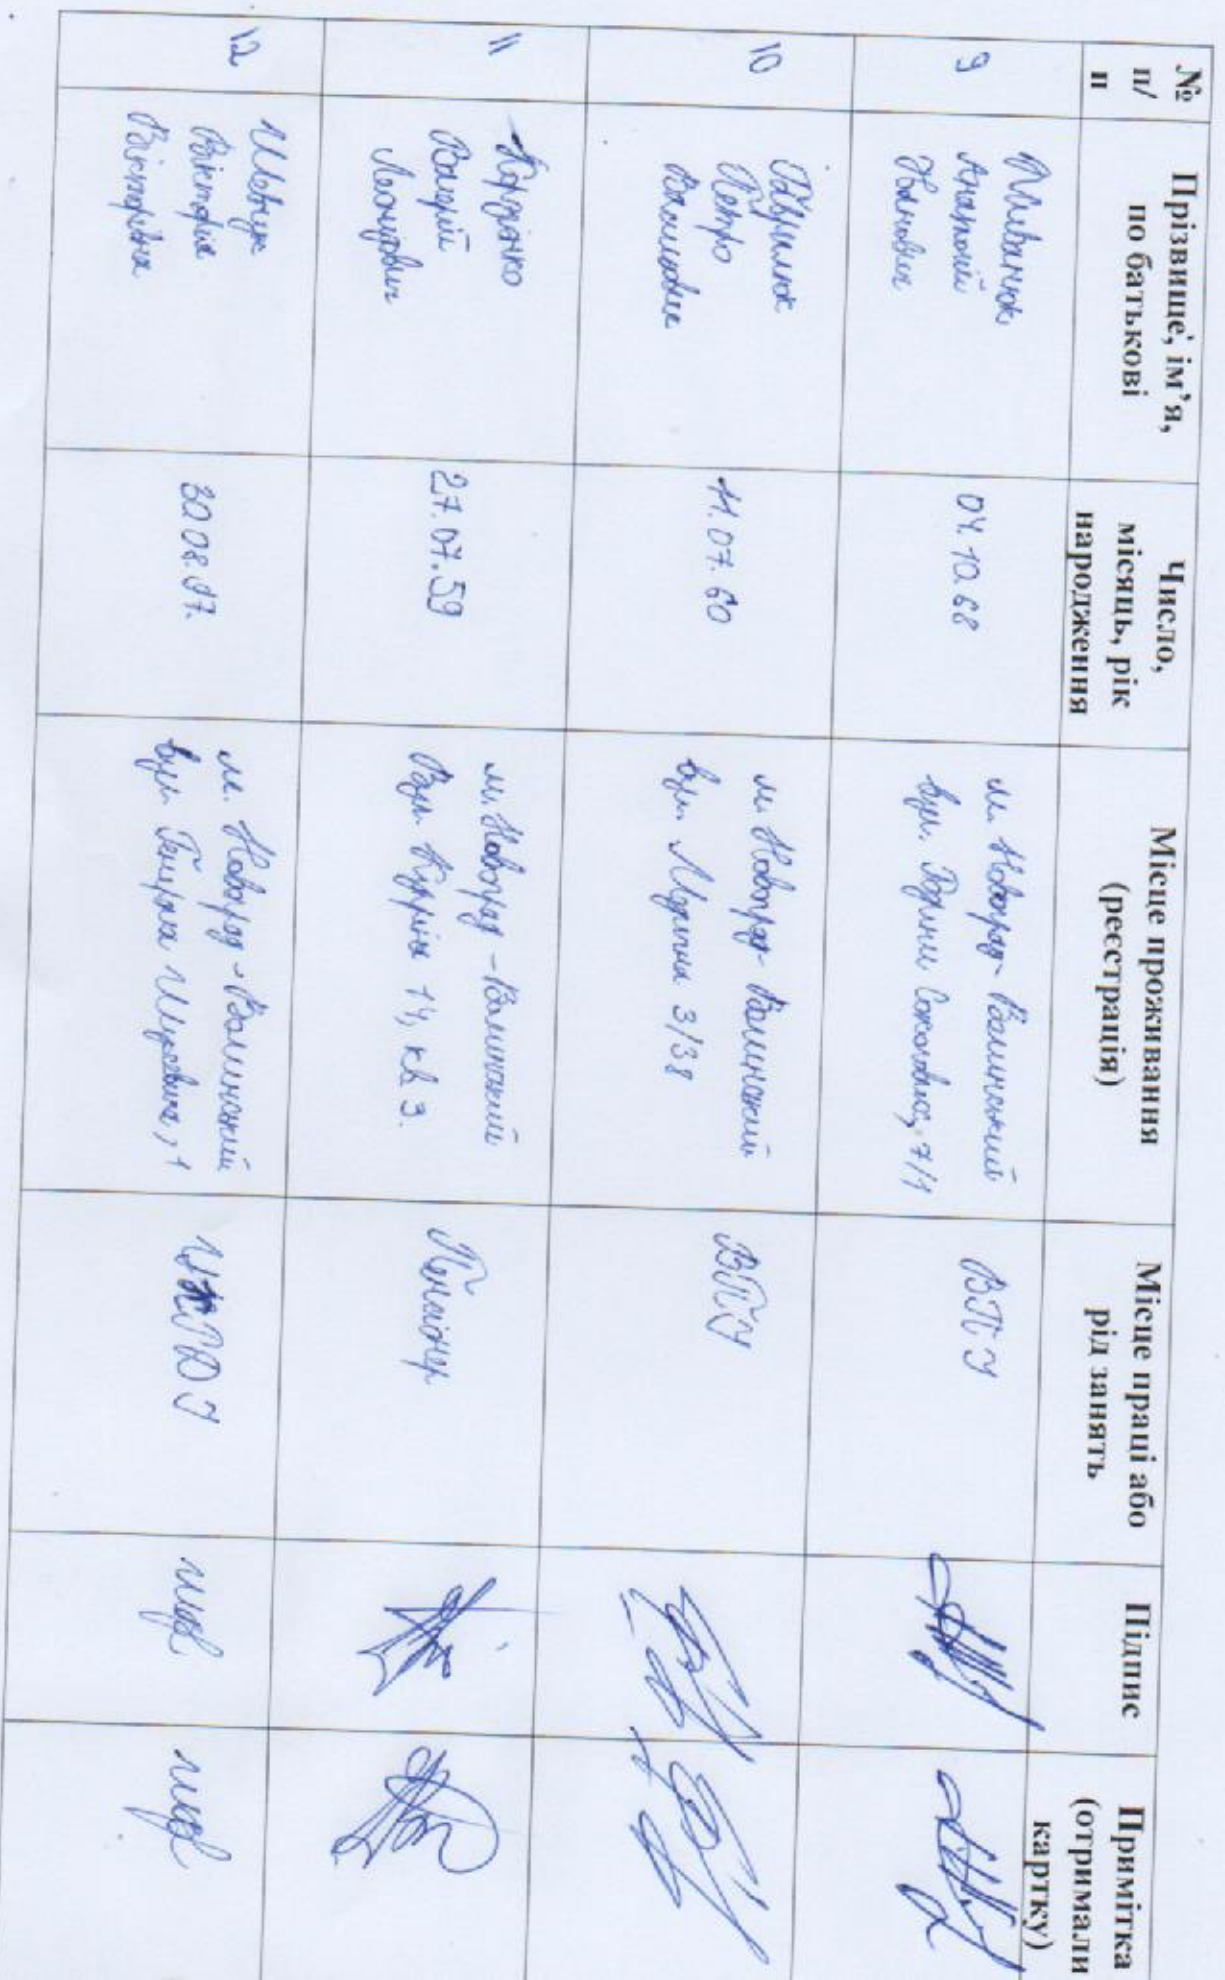 № п/п
Прізвище, ім’я, по батькові
Число, місяць, рік народження
Місце проживання (реєстрація)
Місце праці або рід занять
Підпис
Примітка (отримали картку)
9
Анатолій
Іванович
04.10.68
м. Новоград-Волинський
вул. Родини Соколових, 7/1
ВПУ
10
Гаврилюк
Петро
Васильович
11.07.60
м. Новоград-Волинський
вул. Медична 3/38
ВПУ
11
Валерій
Леонідович
27.07.59
м. Новоград-Волинський
вул. 14, кв 3.
Пенсіонер
12
Шевчук
Вікторія
Вікторівна
30.08.97.
м. Новоград-Волинський
вул. Генерала Шухевича, 1